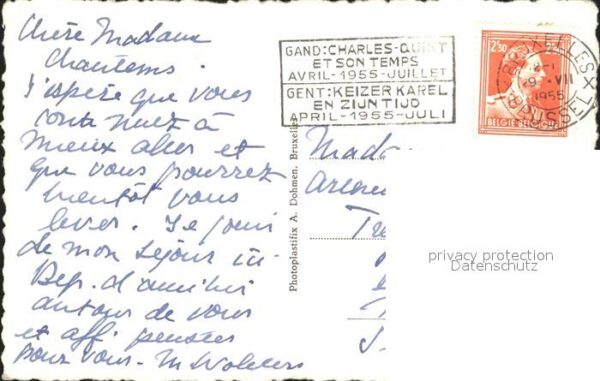 Chère Madame
Chantems.
J'espère que vous
continuez à
mieux aller et
que vous pourrez
bientôt vous
lever. Je jouis
de mon séjour ici.
Bcp. d'amitiés
autour de vous
et aff. pensées
pour vous - M
GAND: CHARLES-QUINT
ET SON TEMPS
AVRIL-1955-JUILLET
GENT: KEIZER KAREL
EN ZIJN TIJD
APRIL-1955-JULI
BRUXELLES X
VII
1955
BRUSSEL
2F50
BELGIE BELGIQUE
Photoplastifix A. Dohmen, Bruxelles
Mad
privacy protection
Datenschutz